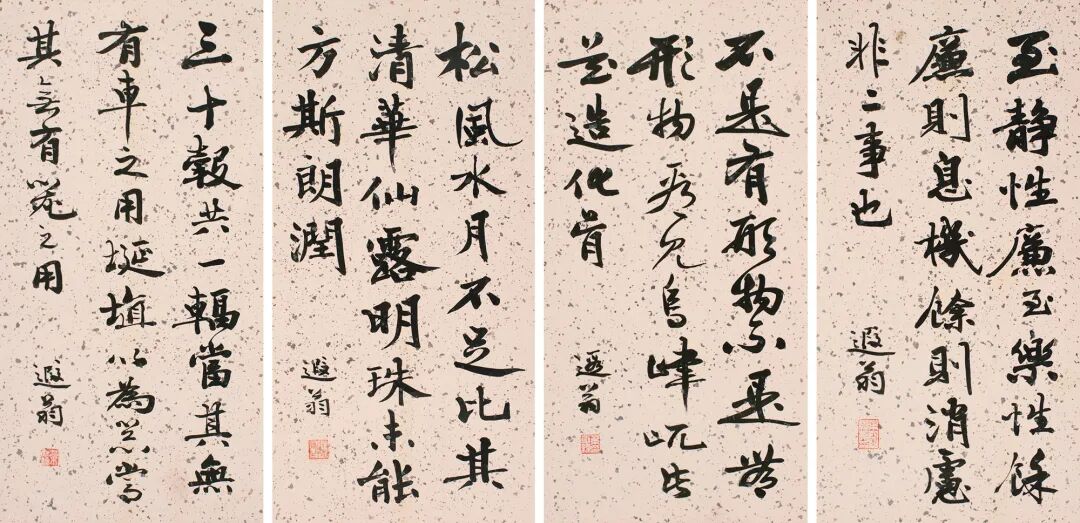 至靜性廉至樂性餘
廉則息機餘則消慮
非二事也
遐翁
不是有形物是無
形物見烏峰屹
造化骨
遐翁
松風水月不足比其
清華仙露明珠未能
方斯朗潤
遐翁
三十轂共一輻當其無
有車之用埏埴以為器當
其無有器之用
遐翁